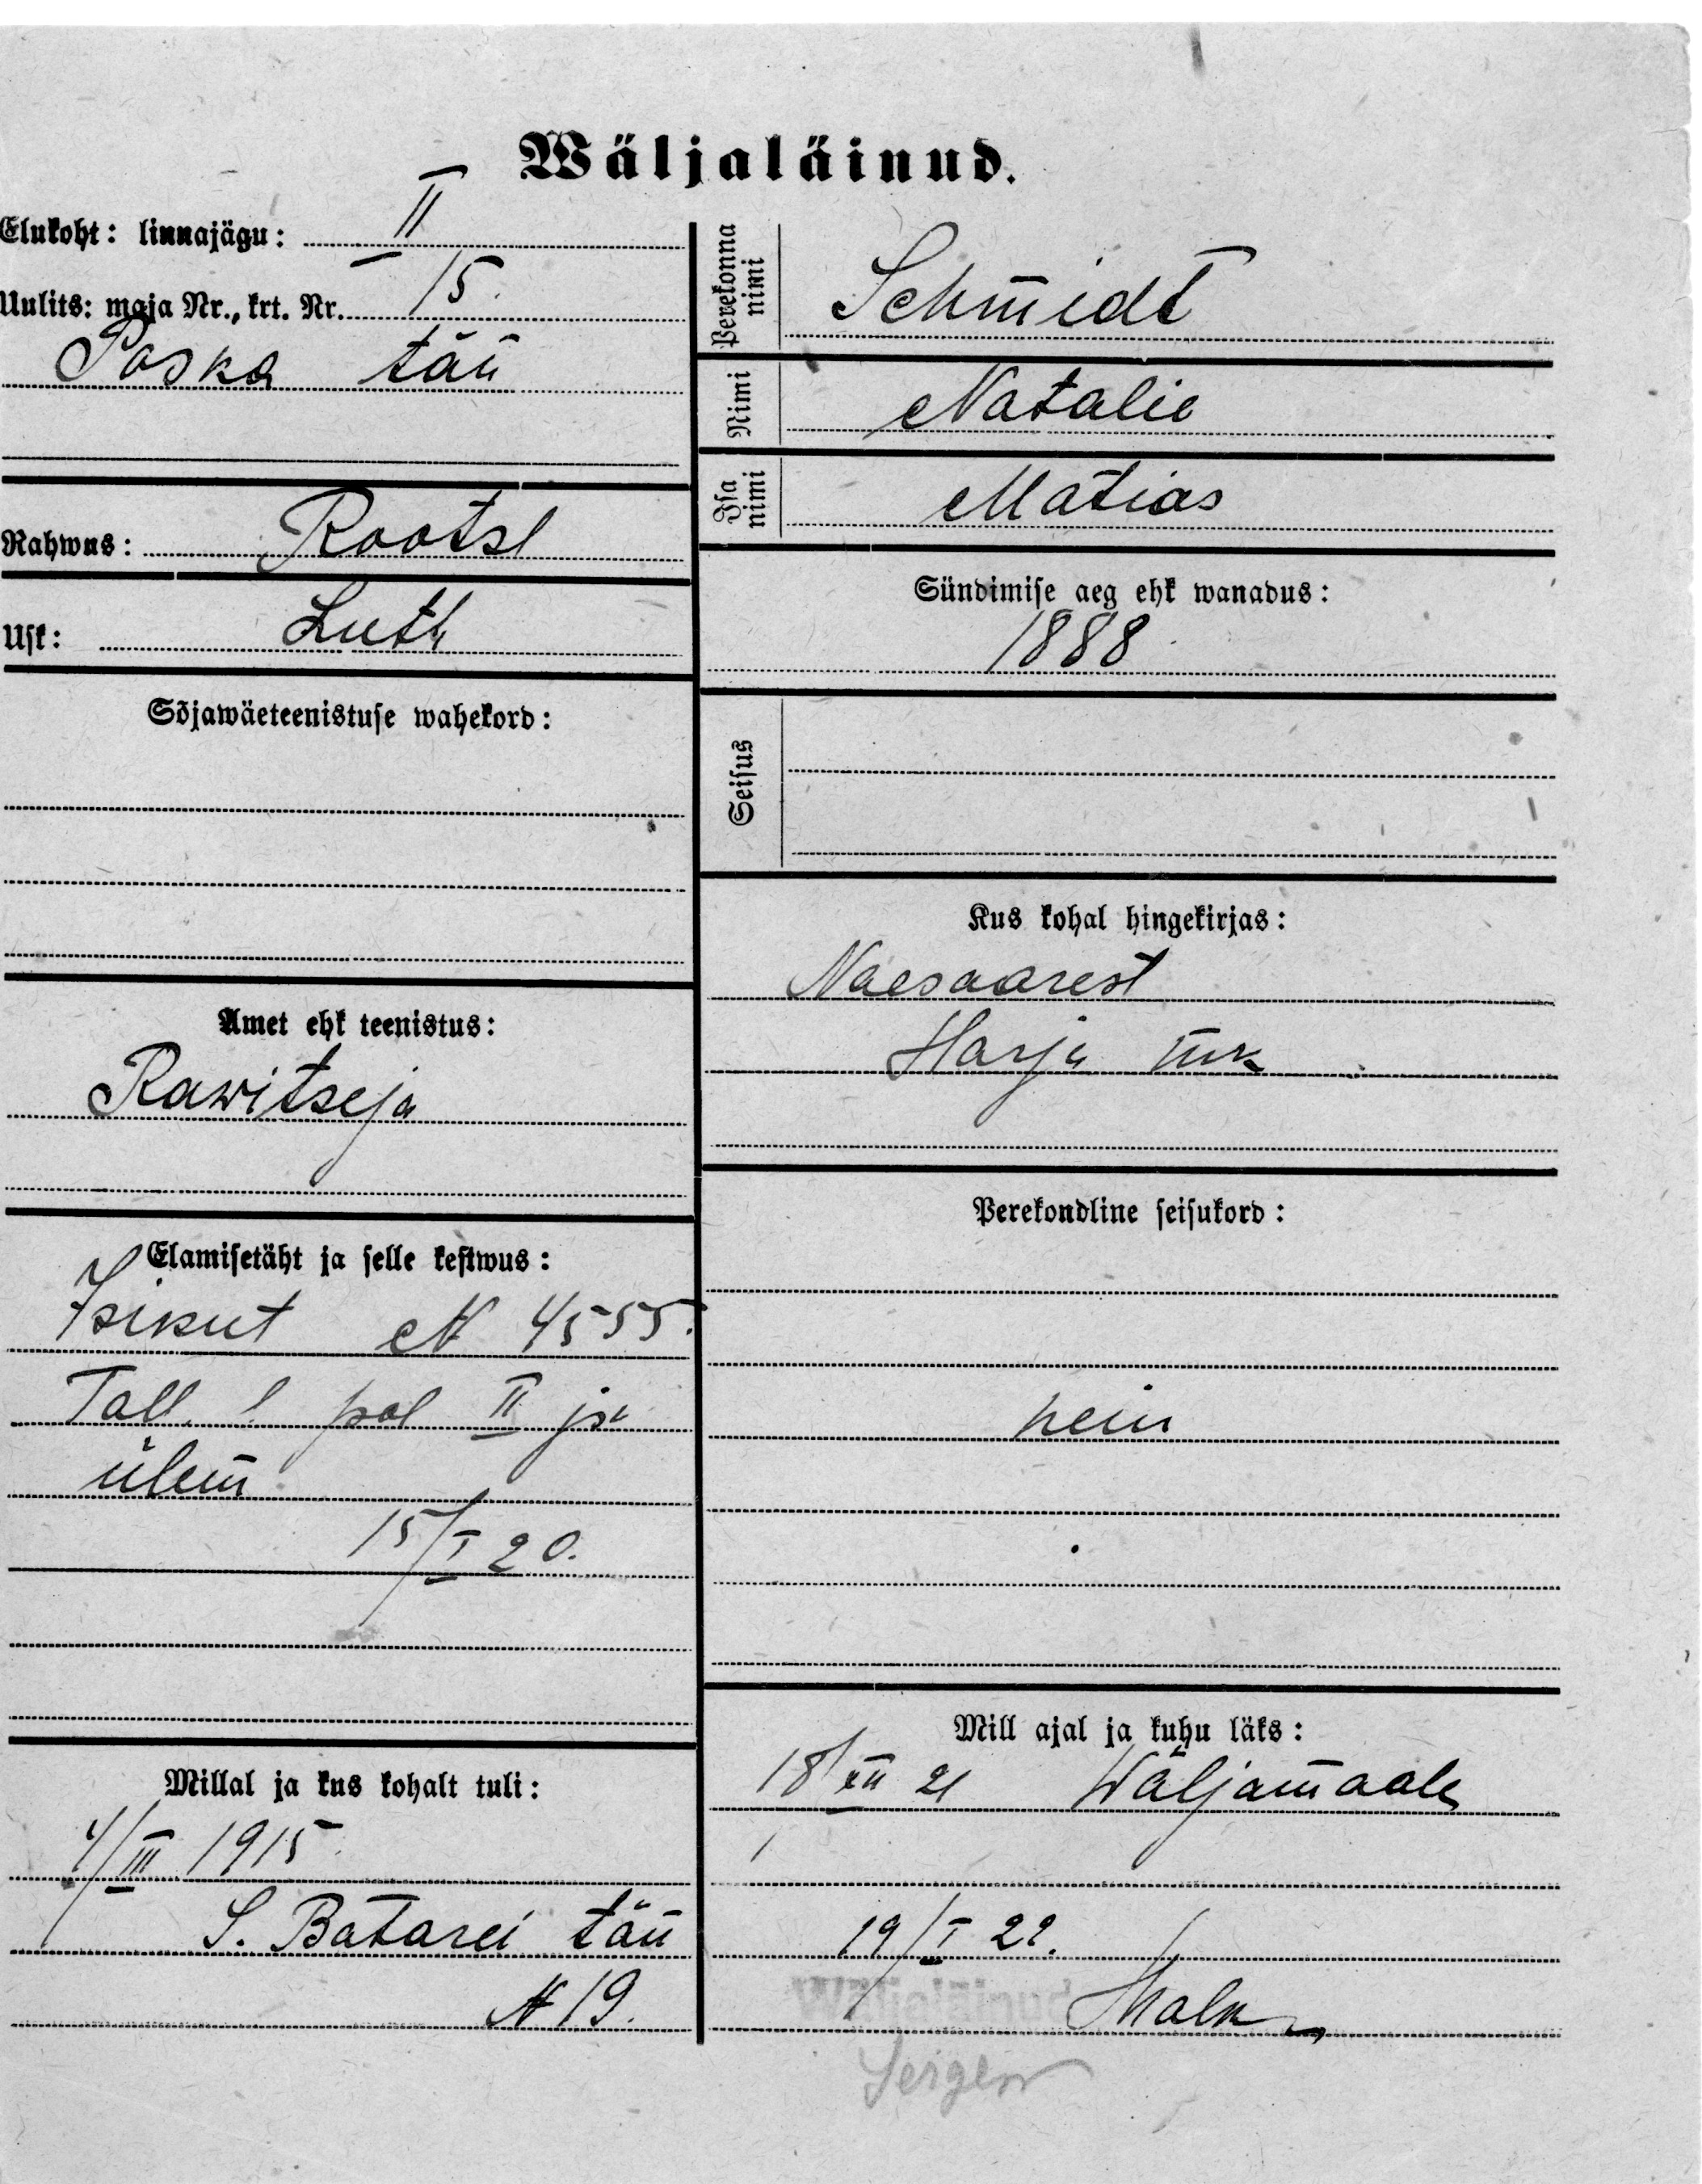 Wäljaläinud.
Elukoht: linnajägu: II
Uulits: maja Nr., krt. Nr. 15.
Poska tän
Rahwus: Rootsl
Usk: Luth
Sõjawäeteenistuse wahekord:
Amet ehk teenistus:
Rawitseja
Elamisetäht ja selle kestwus:
Isikut N 4555.
Tall. l. pol II js
ülem
15/I 20.
Millal ja kus kohalt tuli:
4/III 1915.
S. Batarei tän
N 19.
Perekonna nimi
Schmidt
Nimi
Natalie
Isa nimi
Matias
Sündimise aeg ehk wanadus:
1888
Seisus
Kus kohal hingekirjas:
Naesaarest
Harju mk
Perekondline seisukord:
nein
Mill ajal ja kuhu läks:
18/XII 21 Wäljamaale
19/I 22.
Wäljaläinud